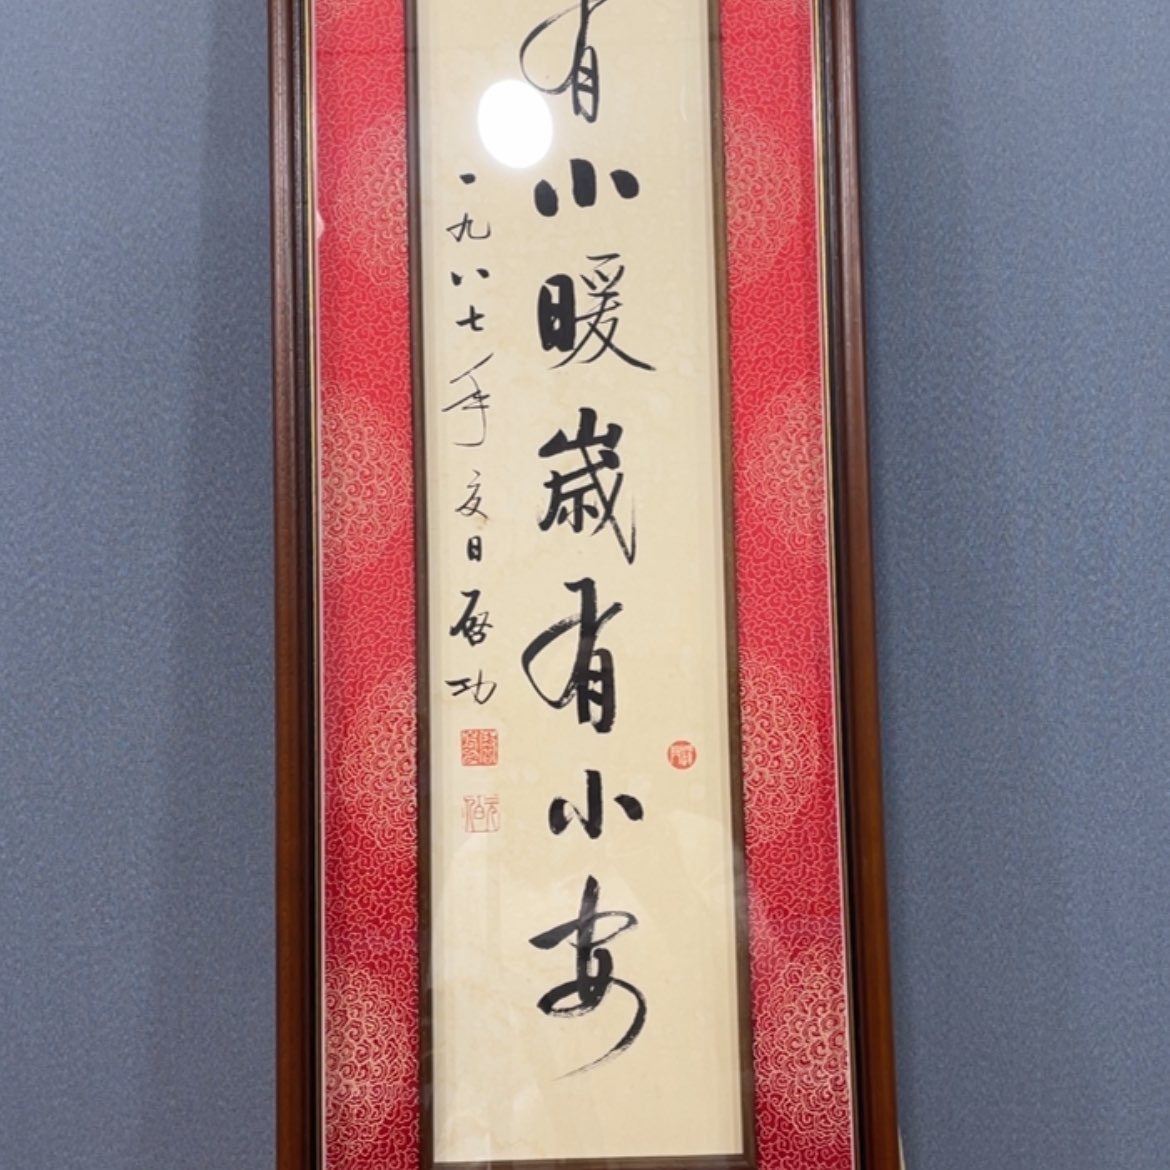 有小暖歲有小安
一九八七年夏日啓功